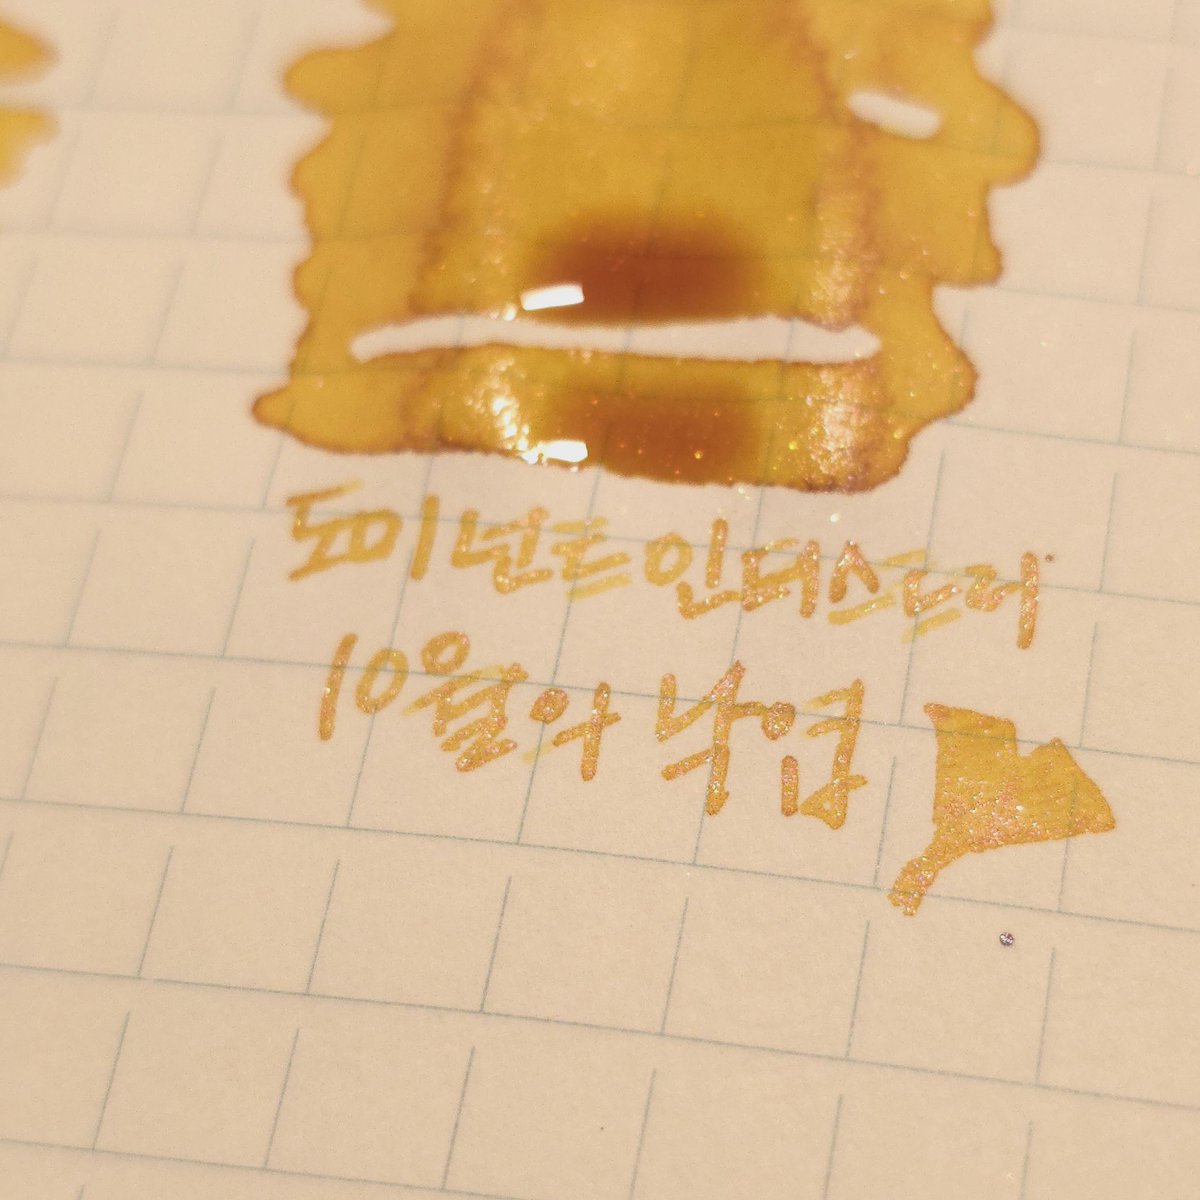 도미넌트인더스트리
10월의 낙엽